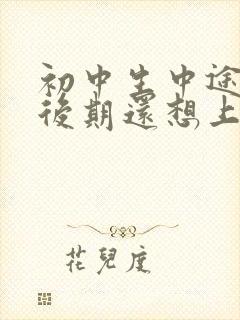 初中生中途
後期還想上
花兒度